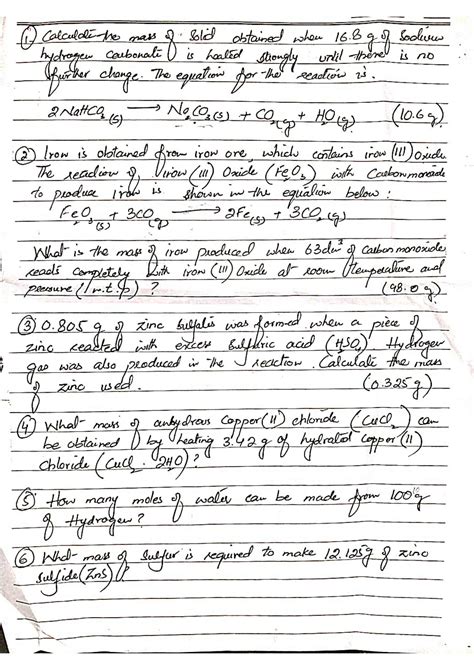 ① Calculate the mass of solid obtained when 16.8 g of Sodium
hydrogen Carbonate is heated strongly until there is no
further change. The equation for the reaction is.
2NaHCO₃(s) → Na₂CO₃(s) + CO₂(g) + H₂O(g) (10.6g)
② Iron is obtained from iron ore, which contains iron (III) Oxide
The reaction of iron (III) Oxide (FeO₃) with Carbon monoxide
to produce iron is shown in the equation below:
FeO₃(s) + 3CO(g) → 2Fe(s) + 3CO₂(g)
What is the mass of iron produced when 63dm³ of Carbon monoxide
reacts Completely with iron (III) Oxide at room temperature and
pressure (r.t.p) ? (98.0 g)
③ 0.805 g of zinc Sulfate was formed when a piece of
zinc reacted with excess Sulfuric acid (H₂SO₄) Hydrogen
gas was also produced in the reaction. Calculate the mass
of zinc used. (0.325g)
④ What mass of anhydrous Copper(II) chloride (CuCl₂) can
be obtained by heating 3.42 g of hydrated Copper (II)
chloride (CuCl₂·2H₂O)?
⑤ How many moles of water can be made from 100g
of Hydrogen?
⑥ What mass of Sulfur is required to make 12.125g of zinc
sulfide (ZnS)